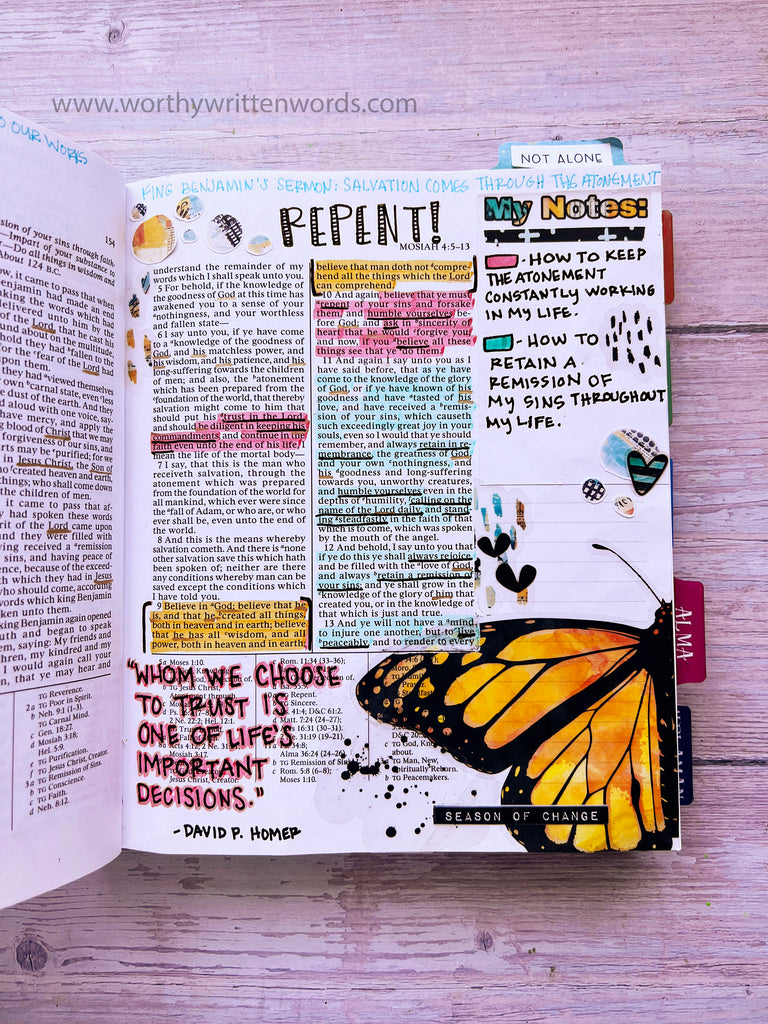 www.worthywrittenwords.com
O OUR WORKS
NOT ALONE
KING BENJAMIN'S SERMON: SALVATION COMES THROUGH THE ATONEMENT
REPENT!
MOSIAH 4:5–13
154
sion of your sins through faith
—Impart of your substance to
—Do all things in wisdom and
About 124 B.C.
ow, it came to pass that when
enjamin had made an end
aking the words which had
delivered unto him by the
of the Lord, that he cast his
ound about on the multitude,
hold they had fallen to the
or the fear of the Lord had
upon them.
they had viewed themselves
own carnal state, even less
e dust of the earth. And
d aloud with one voice, say-
have mercy, and apply the
g blood of Christ that we may
forgiveness of our sins, and
arts may be purified; for we
in Jesus Christ, the Son of
created heaven and earth,
things; who shall come down
the children of men.
it came to pass that af-
y had spoken these words
irit of the Lord came upon
nd they were filled with
ving received a remission
sins, and having peace of
ce, because of the exceed-
h which they had in Jesus
ho should come, according
words which king Benjamin
oken unto them.
king Benjamin again opened
uth and began to speak
em, saying: My friends and
hren, my kindred and my
I would again call your
n, that ye may hear and
TG Reverence.
2a TG Poor in Spirit.
b Neh. 9:1 (1–3).
TG Carnal Mind.
c Gen. 18:27.
d Mosiah 3:18;
Hel. 5:9.
f TG Purification.
g TG Jesus Christ, Creator.
3a TG Remission of Sins.
b TG Conscience.
c TG Faith.
d Neh. 8:12.
understand the remainder of my
words which I shall speak unto you.
5 For behold, if the knowledge of
the goodness of God at this time has
awakened you to a sense of your
nothingness, and your worthless
and fallen state—
6 I say unto you, if ye have come
to a knowledge of the goodness of
God, and his matchless power, and
his wisdom, and his patience, and his
long-suffering towards the children
of men; and also, the atonement
which has been prepared from the
foundation of the world, that thereby
salvation might come to him that
should put his trust in the Lord,
and should be diligent in keeping his
commandments, and continue in the
faith even unto the end of his life, I
mean the life of the mortal body—
7 I say, that this is the man who
receiveth salvation, through the
atonement which was prepared
from the foundation of the world for
all mankind, which ever were since
the fall of Adam, or who are, or who
ever shall be, even unto the end of
the world.
8 And this is the means whereby
salvation cometh. And there is none
other salvation save this which hath
been spoken of; neither are there
any conditions whereby man can be
saved except the conditions which
I have told you.
9 Believe in God; believe that he
is, and that he created all things,
both in heaven and in earth; believe
that he has all wisdom, and all
power, both in heaven and in earth;
believe that man doth not compre-
hend all the things which the Lord
can comprehend.
10 And again, believe that ye must
repent of your sins and forsake
them, and humble yourselves be-
fore God; and ask in sincerity of
heart that he would forgive you;
and now, if you believe all these
things see that ye do them.
11 And again I say unto you as I
have said before, that as ye have
come to the knowledge of the glory
of God, or if ye have known of his
goodness and have tasted of his
love, and have received a remis-
sion of your sins, which causeth
such exceedingly great joy in your
souls, even so I would that ye should
remember, and always retain in re-
membrance, the greatness of God,
and your own nothingness, and
his goodness and long-suffering
towards you, unworthy creatures,
and humble yourselves even in the
depths of humility, calling on the
name of the Lord daily, and stand
ing steadfastly in the faith of that
which is to come, which was spoken
by the mouth of the angel.
12 And behold, I say unto you that
if ye do this ye shall always rejoice,
and be filled with the love of God,
and always retain a remission of
your sins; and ye shall grow in the
knowledge of the glory of him that
created you, or in the knowledge of
that which is just and true.
13 And ye will not have a mind
to injure one another, but to live
peaceably, and to render to every
My Notes:
- HOW TO KEEP
THE ATONEMENT
CONSTANTLY WORKING
IN MY LIFE.
- HOW TO
RETAIN A
REMISSION OF
MY SINS THROUGHOUT
MY LIFE.
ALMA
"WHOM WE CHOOSE
TO TRUST IS
ONE OF LIFE'S
IMPORTANT
DECISIONS."
- DAVID P. HOMER
5a Moses 1:10.
Mosiah 3:17.
Jesus Christ, Creator.
Rom. 11:34 (33–36);
TG Repent.
Sincere.
41:4; D&C 61:2.
Matt. 7:24 (24–27);
16:31 (30–31).
31:19 (19–21).
Alma 36:24 (24–26).
b TG Remission of Sins.
c Rom. 5:8 (6–8);
Moses 1:10.
D&C 20:
c TG God, Kno
about.
TG Man, New,
Spiritually Reborn.
b TG Peacemakers.
SEASON OF CHANGE